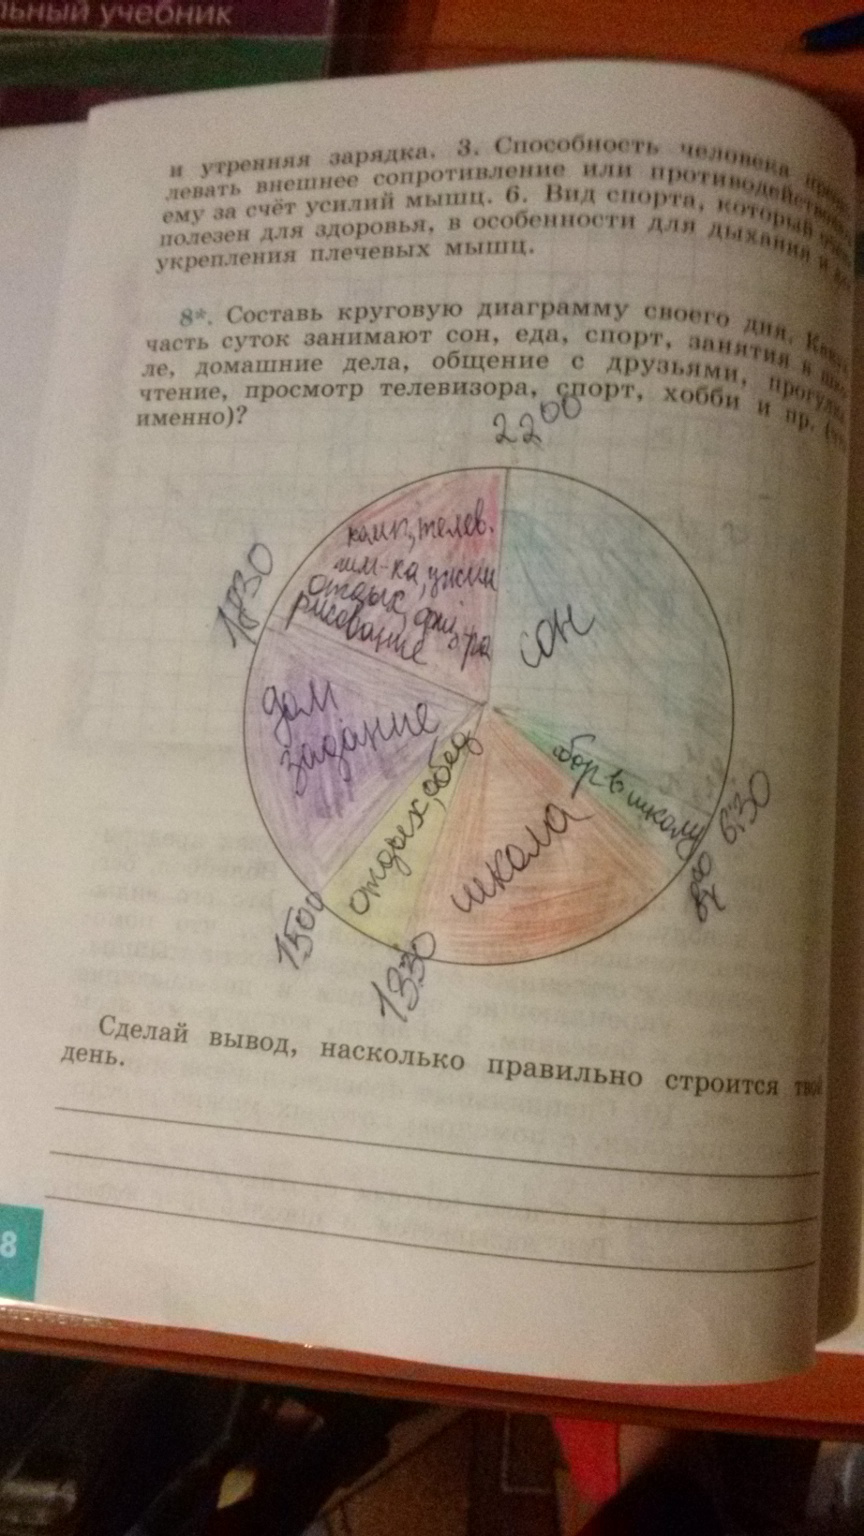 льный учебник
и утренняя зарядка. 3. Способность человека
левать внешнее сопротивление или противодействовать
ему за счёт усилий мышц. 6. Вид спорта, который
полезен для здоровья, в особенности для дыхания и
укрепления плечевых мышц.
8*. Составь круговую диаграмму своего дня.
часть суток занимают сон, еда, спорт, занятия в
ле, домашние дела, общение с друзьями,
чтение, просмотр телевизора, спорт, хобби и пр.
именно)?
22 00
комп, телев.
ужин
отдых,
рисование
18 30
сон
дом
задание
отдых, обед
школа
сбор в школу
6:30
15 00
13 30
Сделай вывод, насколько правильно строится твой
день.
8